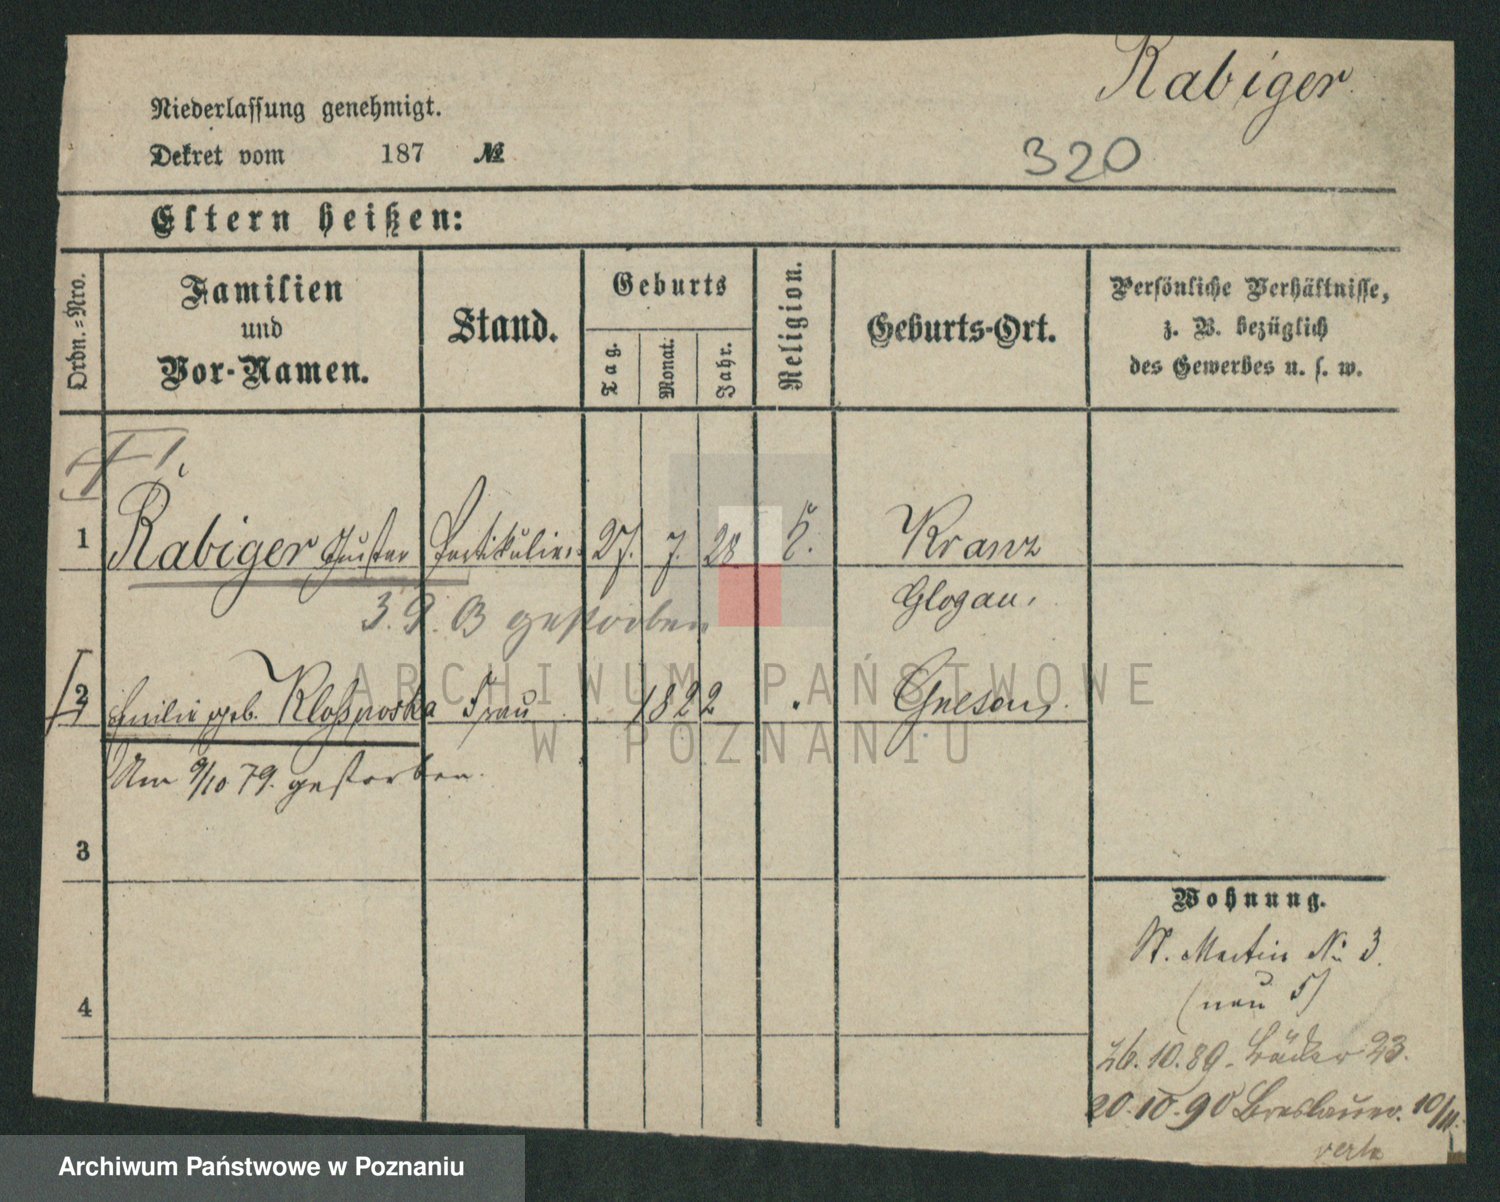 Rabiger.
Niederlassung genehmigt.
320
Dekret vom 187 №
Eltern heißen:
Ordn.=Nro.
Familien
und
Vor-Namen.
Stand.
Geburts
Tag.
Monat.
Jahr.
Religion.
Geburts-Ort.
Persönliche Verhältnisse,
z. B. bezüglich
des Gewerbes u. s. w.
1 Rabiger Gustav Partikulier 27. 7. 28 k. Kranz
Glogau.
3.9.03 gestorben
2 Emilie geb. Kloßowska Frau 1822 Gnesen.
Am 9/10 79. gestorben.
3
4
Wohnung.
St. Martin No 3.
(neu 5)
26.10.89. Bäcker 23.
20.10.90 Breslauer. 10/11.
verte
ARCHIWUM PAŃSTWOWE
W POZNANIU
Archiwum Państwowe w Poznaniu